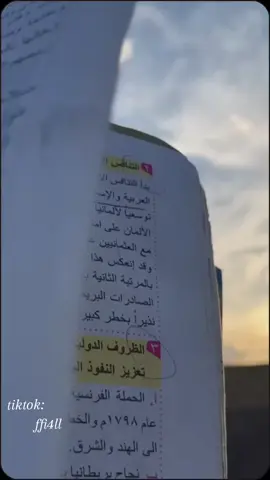 ٢ التنافس
بدأ التنافس
العربية والإس
توسعياً لألمانيا
الألمان على ام
مع العثمانيين
وقد إنعكس هذا
بالمرتبة الثانية ب
الصادرات البري
نذيراً بخطر كبير
٣ الظروف الدولي
تعزيز النفوذ ال
أ. الحملة الفرنسي
عام ١٧٩٨م والخ
الى الهند والشرق.
نجاح بريطانيا
tiktok:
ffi4ll